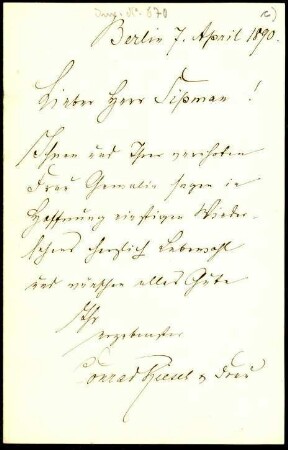 Inv.-Nr. 670
Berlin 7. April 1890.
Lieber Herr Tipman!
Ihnen und Ihrer verehrten
Frau Gemalin sagen in
Hoffnung einstigen Wieder-
sehens herzlich Lebewohl
und wünschen alles Gute
Ihr
ergebenster
Conrad Kiesel & Frau